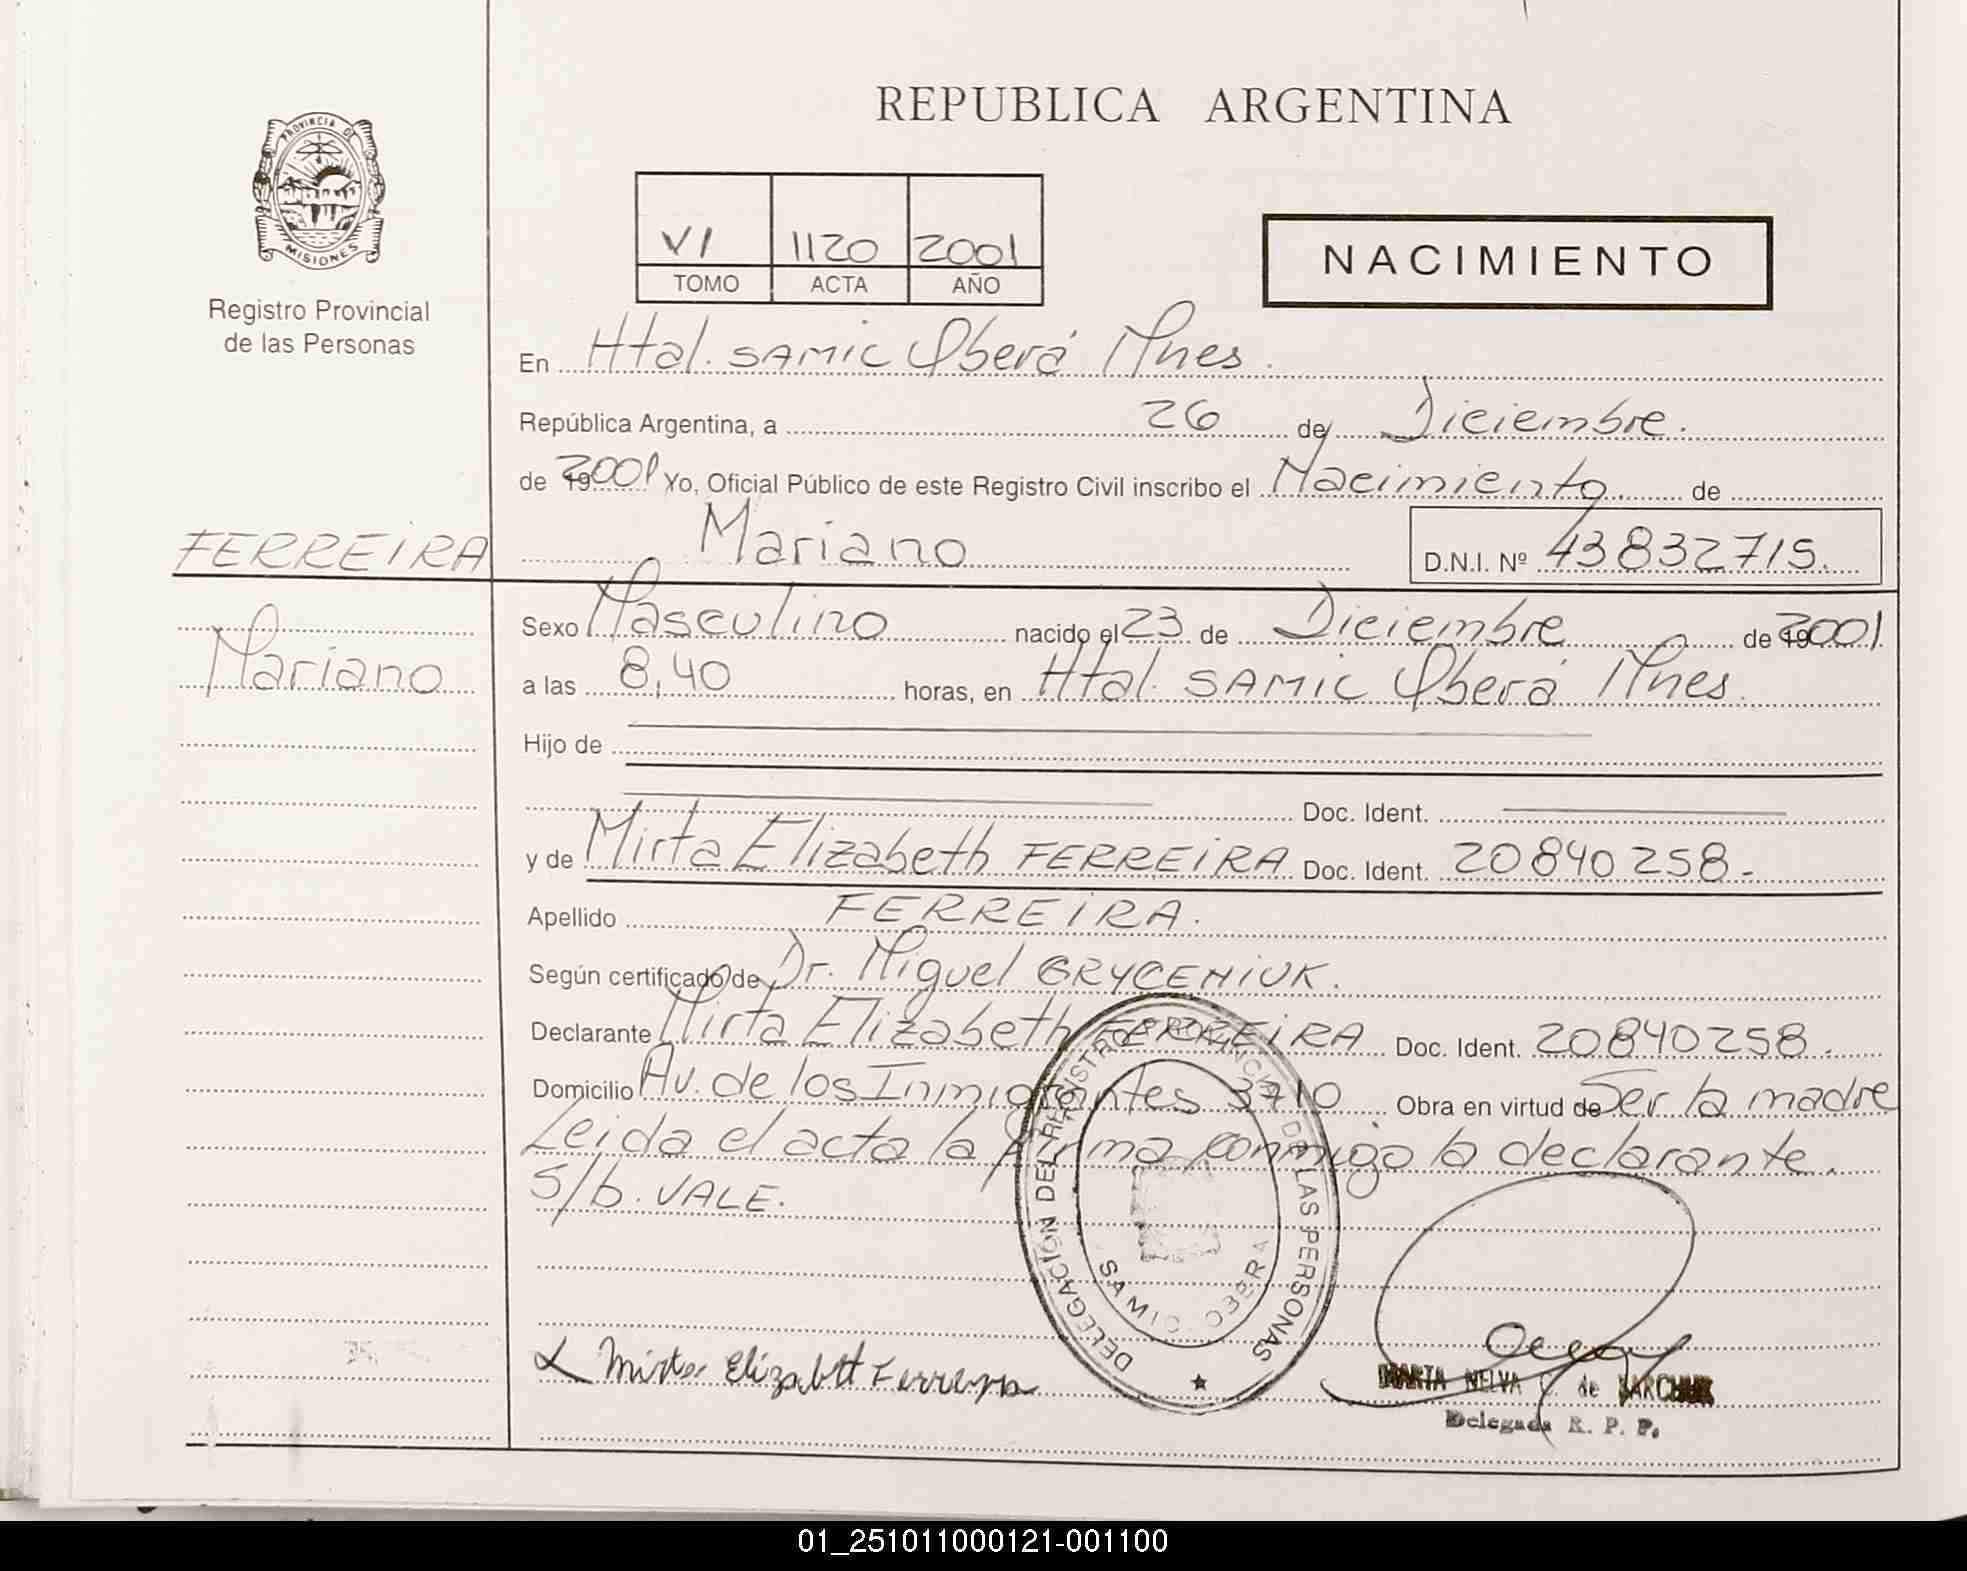 REPUBLICA ARGENTINA
PROVINCIA DE
MISIONES
Registro Provincial
de las Personas
VI 1120 2001
TOMO ACTA AÑO
NACIMIENTO
En Htal. SAMIC Oberá Mnes.
República Argentina, a 26 de Diciembre.
de 2001 Yo, Oficial Público de este Registro Civil inscribo el Nacimiento de
FERREIRA
Mariano D.N.I. Nº 43832715.
Mariano
Sexo Masculino nacido el 23 de Diciembre de 2001.
a las 8,40 horas, en Htal. SAMIC Oberá Mnes.
Hijo de
Doc. Ident.
y de Mirta Elizabeth FERREIRA Doc. Ident. 20840258.-
Apellido FERREIRA.
Según certificado de Dr. Miguel GRYCENIUK.
Declarante Mirta Elizabeth FERREIRA Doc. Ident. 20840258.
Domicilio Av. de los Inmigrantes 3710 Obra en virtud de Ser la madre
Leida el acta la firma conmigo la declarante.
S/b. VALE.
DELEGACION DEL REGISTRO PROVINCIAL DE LAS PERSONAS
SAMIC OBERA
Mirta Elizabett Ferreyra
MARTA NELVA de SARCHUK
Delegada R. P. P.
01_251011000121-001100